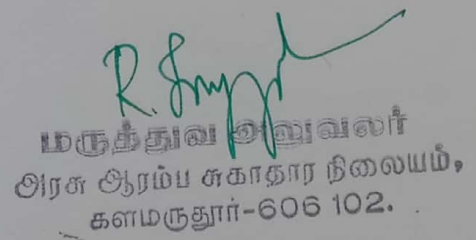 மருத்துவ அலுவலர்
அரசு ஆரம்ப சுகாதார நிலையம்,
களமருதூர்-606 102.